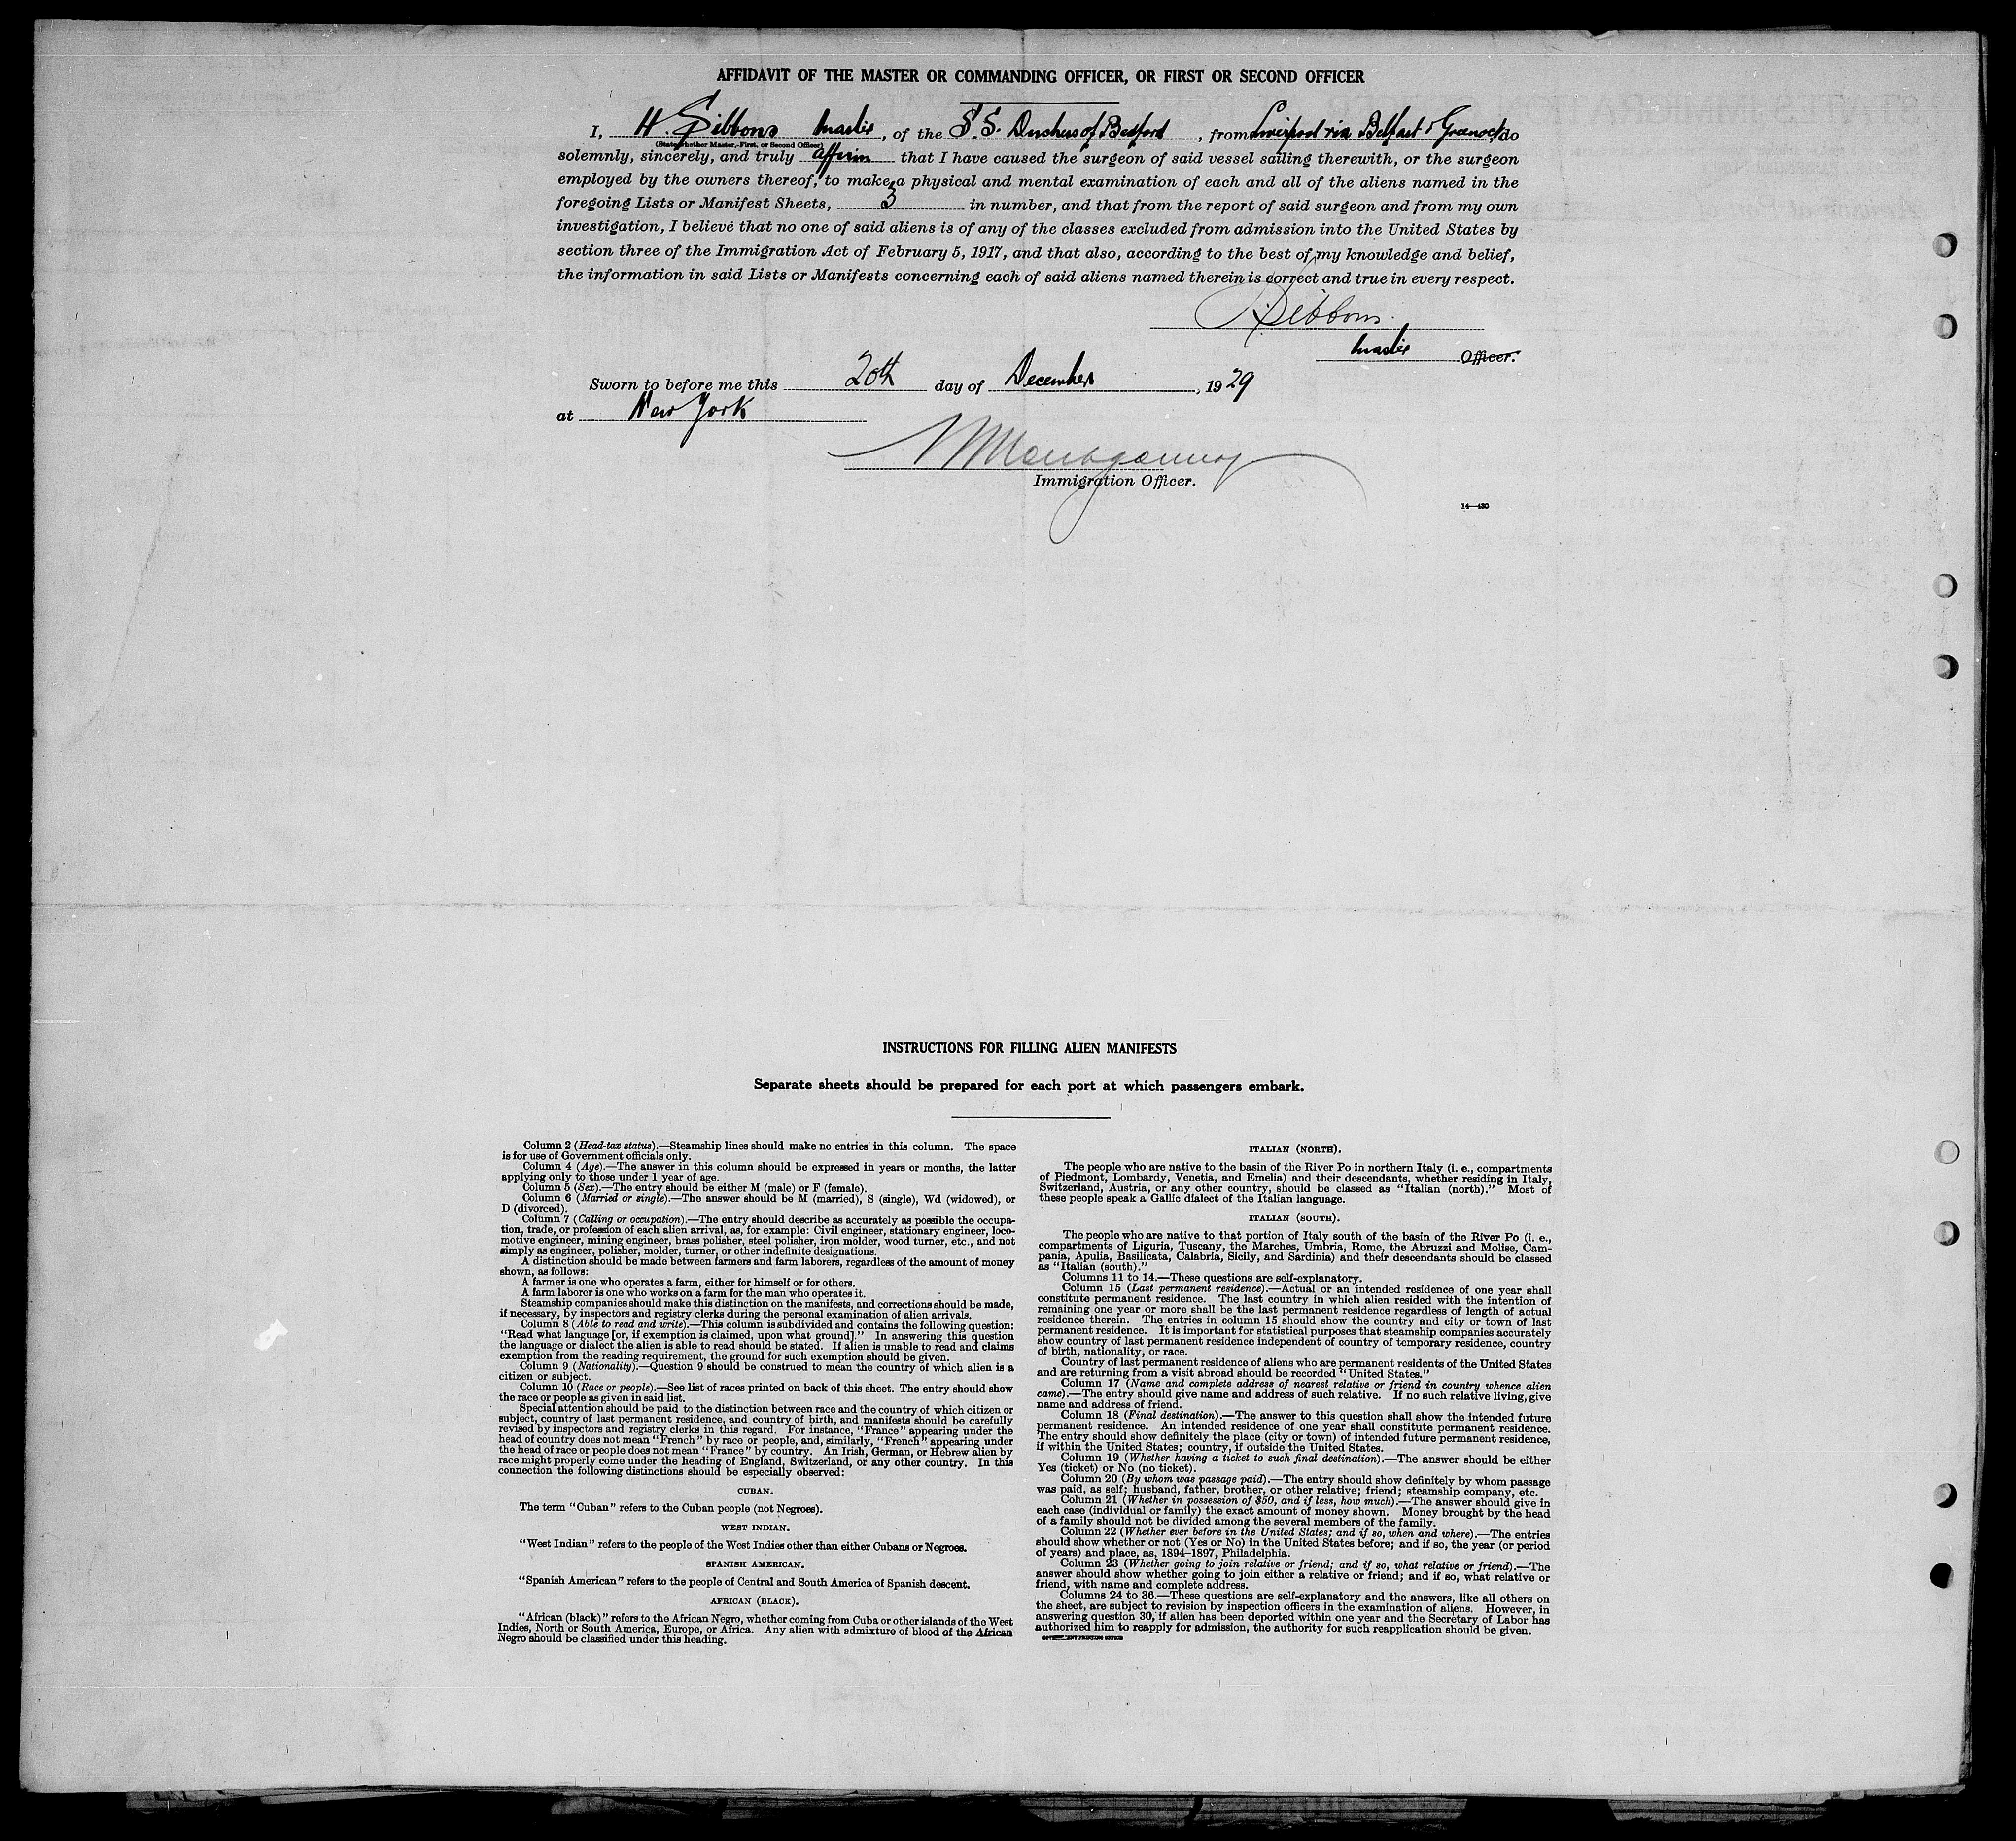 AFFIDAVIT OF THE MASTER OR COMMANDING OFFICER, OR FIRST OR SECOND OFFICER
I, H. Sibbons Master, of the S.S. Duchess of Bedford, from Liverpool via Belfast & Greenock, do
(State whether Master, First, or Second Officer)
solemnly, sincerely, and truly affirm that I have caused the surgeon of said vessel sailing therewith, or the surgeon
employed by the owners thereof, to make a physical and mental examination of each and all of the aliens named in the
foregoing Lists or Manifest Sheets, 3 in number, and that from the report of said surgeon and from my own
investigation, I believe that no one of said aliens is of any of the classes excluded from admission into the United States by
section three of the Immigration Act of February 5, 1917, and that also, according to the best of my knowledge and belief,
the information in said Lists or Manifests concerning each of said aliens named therein is correct and true in every respect.
H. Sibbons.
Master Officer.
Sworn to before me this 20th day of December, 1929
at New York
Montgomery
Immigration Officer.
14—430
INSTRUCTIONS FOR FILLING ALIEN MANIFESTS
Separate sheets should be prepared for each port at which passengers embark.
Column 2 (Head-tax status).—Steamship lines should make no entries in this column. The space
is for use of Government officials only.
Column 4 (Age).—The answer in this column should be expressed in years or months, the latter
applying only to those under 1 year of age.
Column 5 (Sex).—The entry should be either M (male) or F (female).
Column 6 (Married or single).—The answer should be M (married), S (single), Wd (widowed), or
D (divorced).
Column 7 (Calling or occupation).—The entry should describe as accurately as possible the occupa-
tion, trade, or profession of each alien arrival, as, for example: Civil engineer, stationary engineer, loco-
motive engineer, mining engineer, brass polisher, steel polisher, iron molder, wood turner, etc., and not
simply as engineer, polisher, molder, turner, or other indefinite designations.
A distinction should be made between farmers and farm laborers, regardless of the amount of money
shown, as follows:
A farmer is one who operates a farm, either for himself or for others.
A farm laborer is one who works on a farm for the man who operates it.
Steamship companies should make this distinction on the manifests, and corrections should be made,
if necessary, by inspectors and registry clerks during the personal examination of alien arrivals.
Column 8 (Able to read and write).—This column is subdivided and contains the following question:
"Read what language [or, if exemption is claimed, upon what ground]." In answering this question
the language or dialect the alien is able to read should be stated. If alien is unable to read and claims
exemption from the reading requirement, the ground for such exemption should be given.
Column 9 (Nationality).—Question 9 should be construed to mean the country of which alien is a
citizen or subject.
Column 10 (Race or people).—See list of races printed on back of this sheet. The entry should show
the race or people as given in said list.
Special attention should be paid to the distinction between race and the country of which citizen or
subject, country of last permanent residence, and country of birth, and manifests should be carefully
revised by inspectors and registry clerks in this regard. For instance, "France" appearing under the
head of country does not mean "French" by race or people, and, similarly, "French" appearing under
the head of race or people does not mean "France" by country. An Irish, German, or Hebrew alien by
race might properly come under the heading of England, Switzerland, or any other country. In this
connection the following distinctions should be especially observed:
CUBAN.
The term "Cuban" refers to the Cuban people (not Negroes).
WEST INDIAN.
"West Indian" refers to the people of the West Indies other than either Cubans or Negroes.
SPANISH AMERICAN.
"Spanish American" refers to the people of Central and South America of Spanish descent.
AFRICAN (BLACK).
"African (black)" refers to the African Negro, whether coming from Cuba or other islands of the West
Indies, North or South America, Europe, or Africa. Any alien with admixture of blood of the African
Negro should be classified under this heading.
ITALIAN (NORTH).
The people who are native to the basin of the River Po in northern Italy (i. e., compartments
of Piedmont, Lombardy, Venetia, and Emelia) and their descendants, whether residing in Italy,
Switzerland, Austria, or any other country, should be classed as "Italian (north)." Most of
these people speak a Gallic dialect of the Italian language.
ITALIAN (SOUTH).
The people who are native to that portion of Italy south of the basin of the River Po (i. e.,
compartments of Liguria, Tuscany, the Marches, Umbria, Rome, the Abruzzi and Molise, Cam-
pania, Apulia, Basilicata, Calabria, Sicily, and Sardinia) and their descendants should be classed
as "Italian (south)."
Columns 11 to 14.—These questions are self-explanatory.
Column 15 (Last permanent residence).—Actual or an intended residence of one year shall
constitute permanent residence. The last country in which alien resided with the intention of
remaining one year or more shall be the last permanent residence regardless of length of actual
residence therein. The entries in column 15 should show the country and city or town of last
permanent residence. It is important for statistical purposes that steamship companies accurately
show country of last permanent residence independent of country of temporary residence, country
of birth, nationality, or race.
Country of last permanent residence of aliens who are permanent residents of the United States
and are returning from a visit abroad should be recorded "United States."
Column 17 (Name and complete address of nearest relative or friend in country whence alien
came).—The entry should give name and address of such relative. If no such relative living, give
name and address of friend.
Column 18 (Final destination).—The answer to this question shall show the intended future
permanent residence. An intended residence of one year shall constitute permanent residence.
The entry should show definitely the place (city or town) of intended future permanent residence,
if within the United States; country, if outside the United States.
Column 19 (Whether having a ticket to such final destination).—The answer should be either
Yes (ticket) or No (no ticket).
Column 20 (By whom was passage paid).—The entry should show definitely by whom passage
was paid, as self; husband, father, brother, or other relative; friend; steamship company, etc.
Column 21 (Whether in possession of $50, and if less, how much).—The answer should give in
each case (individual or family) the exact amount of money shown. Money brought by the head
of a family should not be divided among the several members of the family.
Column 22 (Whether ever before in the United States; and if so, when and where).—The entries
should show whether or not (Yes or No) in the United States before; and if so, the year (or period
of years) and place, as, 1894–1897, Philadelphia.
Column 23 (Whether going to join relative or friend; and if so, what relative or friend).—The
answer should show whether going to join either a relative or friend; and if so, what relative or
friend, with name and complete address.
Columns 24 to 36.—These questions are self-explanatory and the answers, like all others on
the sheet, are subject to revision by inspection officers in the examination of aliens. However, in
answering question 30, if alien has been deported within one year and the Secretary of Labor has
authorized him to reapply for admission, the authority for such reapplication should be given.
GOVERNMENT PRINTING OFFICE